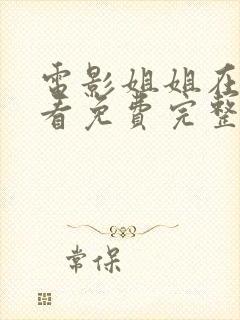 電影姐姐在
看免費完整
常保